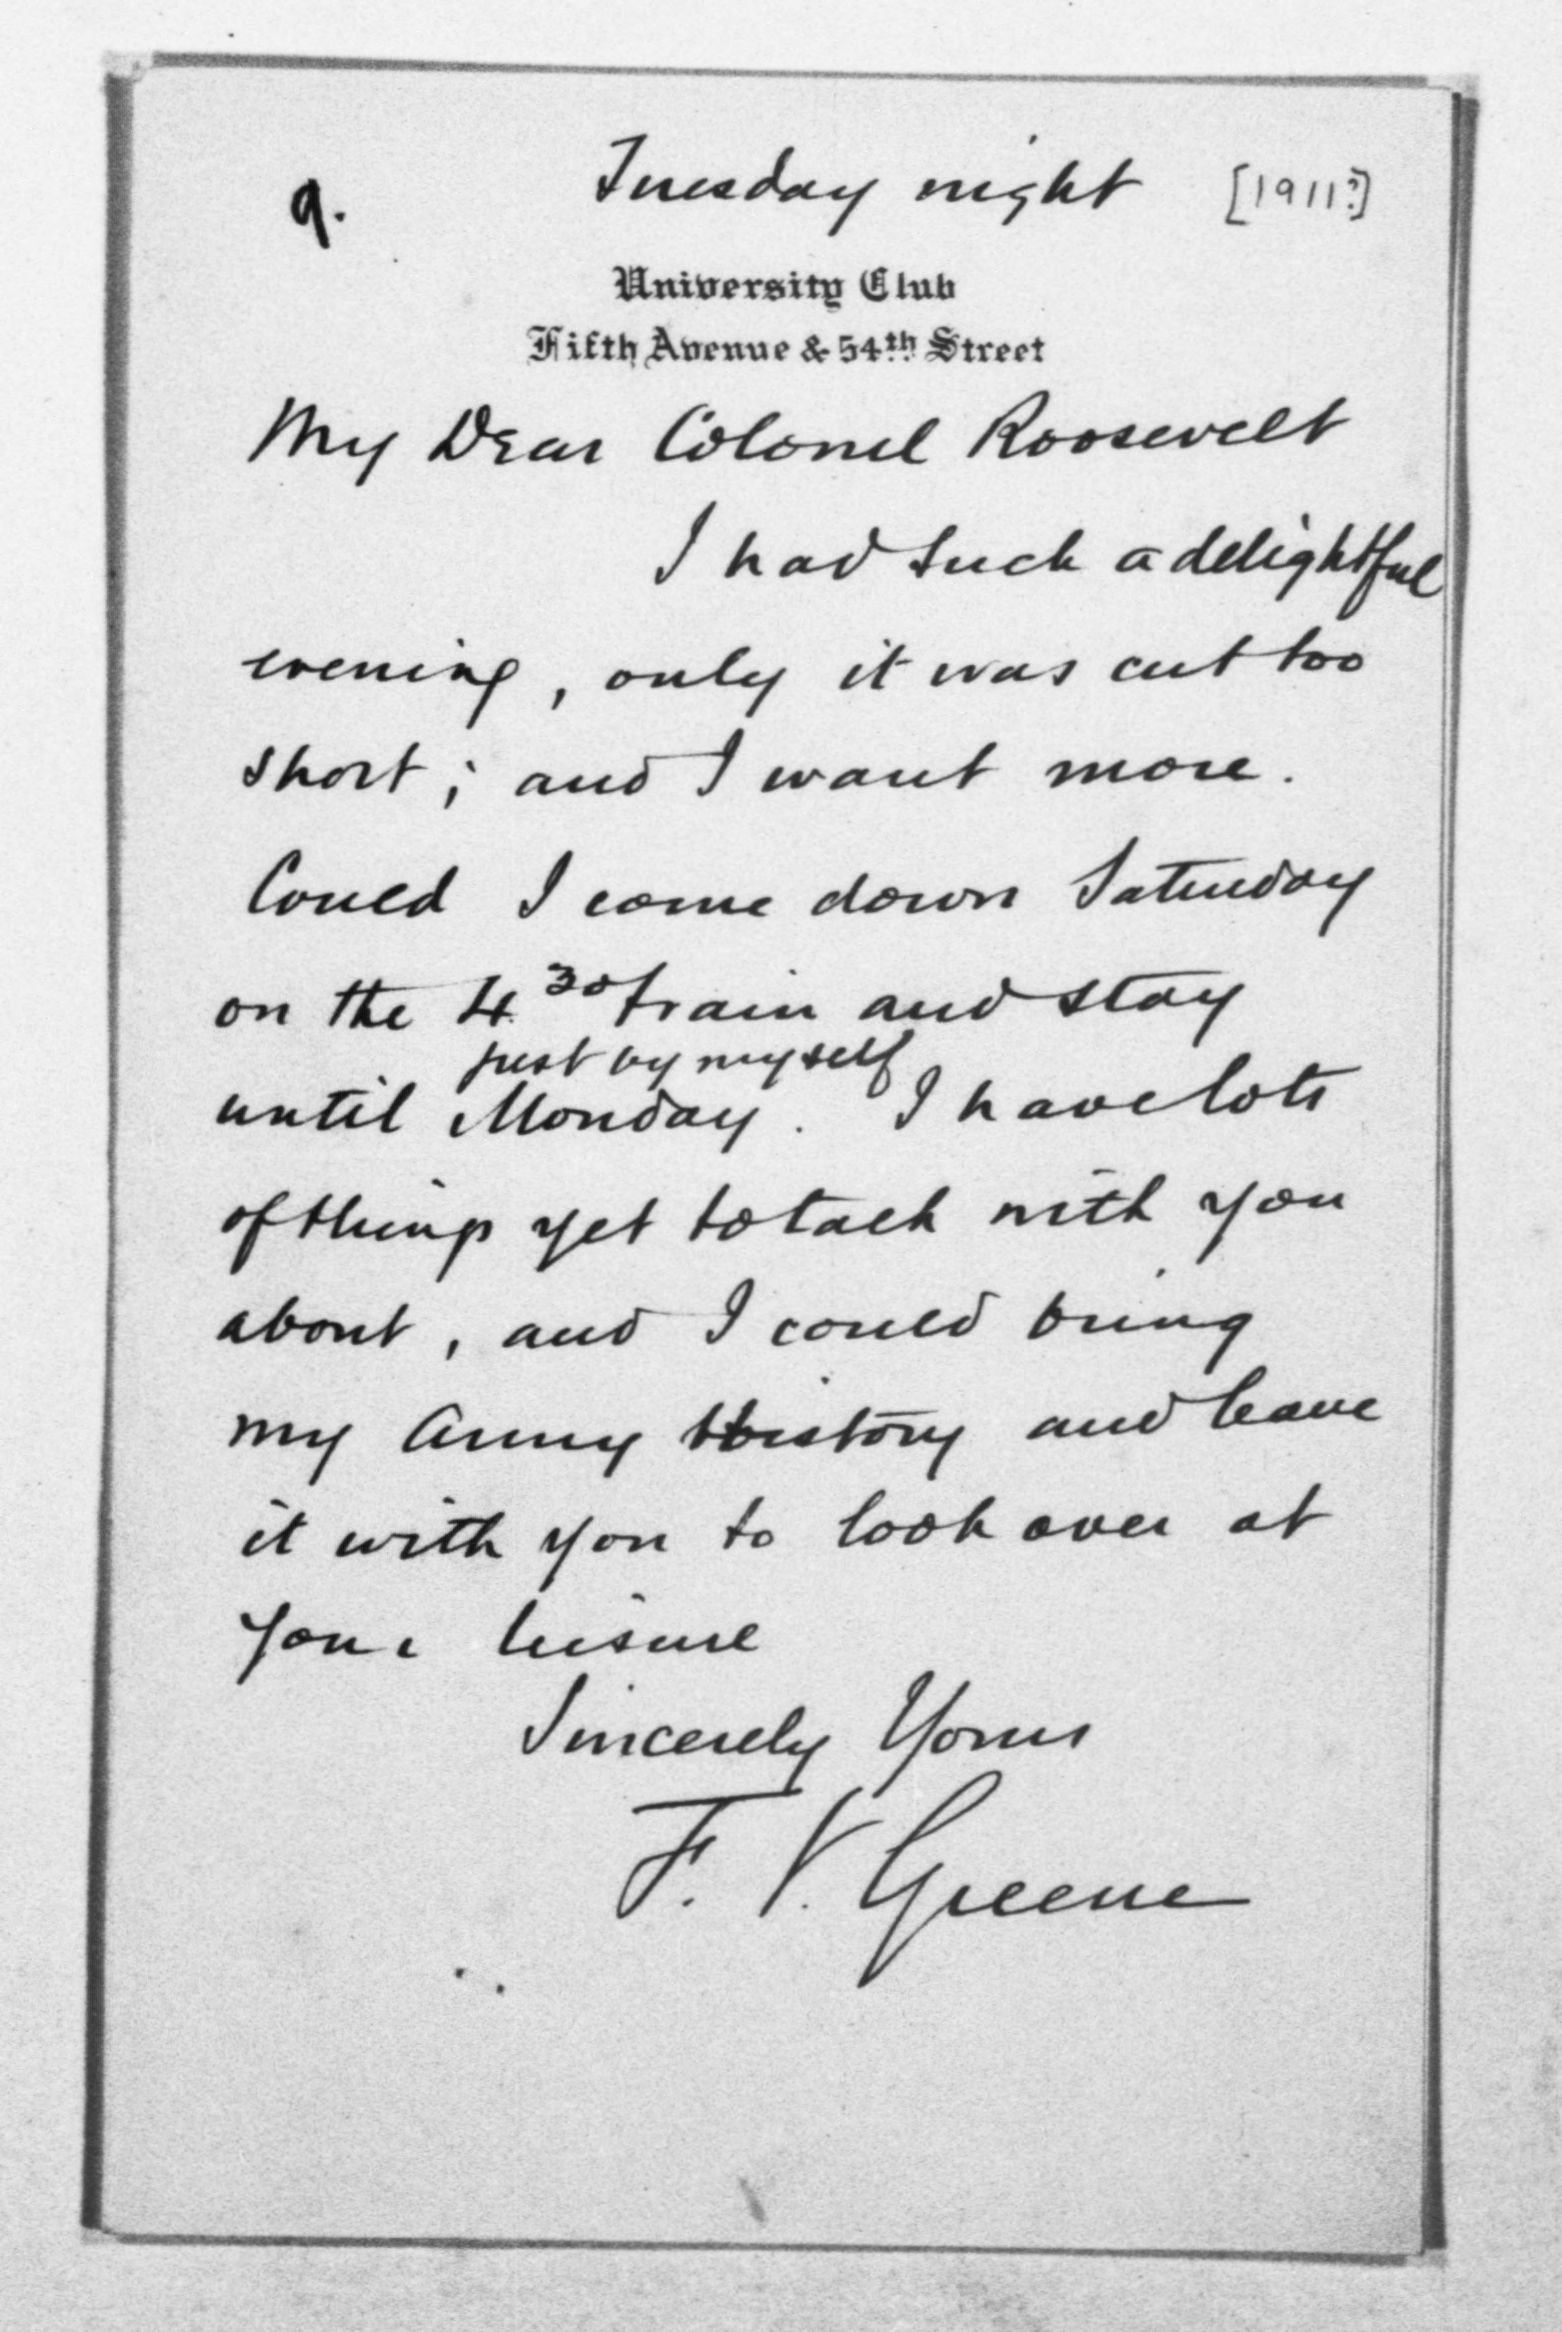 9. Tuesday night [1911?]
University Club
Fifth Avenue & 54th Street
My Dear Colonel Roosevelt
I had such a delightful
evening, only it was cut too
short; and I want more.
Could I come down Saturday
on the 4.30 train and stay
just by myself
until Monday. I have lots
of things yet to talk with you
about, and I could bring
my Army History and leave
it with you to look over at
your leisure
Sincerely Yours
F. V. Greene